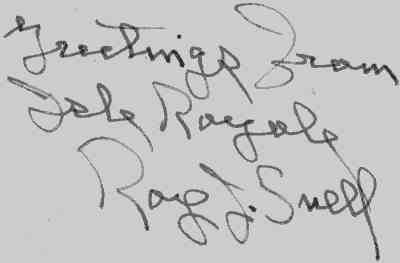 Greetings From
Isle Royale
Roy J. Snell